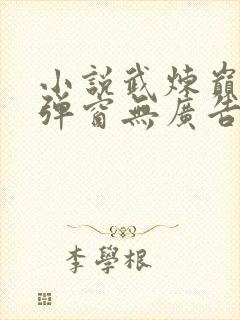 小說武煉巔
彈窗無廣告
李學根